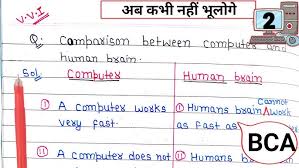 V.V.I
अब कभी नहीं भूलोगे
2
Q. Comparison between computer and
human brain.
Sol. Computer
Human brain
(i) A computer works
very fast.
(i) Humans brain cannot work
as fast as
BCA
(ii) A computer does not
(ii) Humans brain